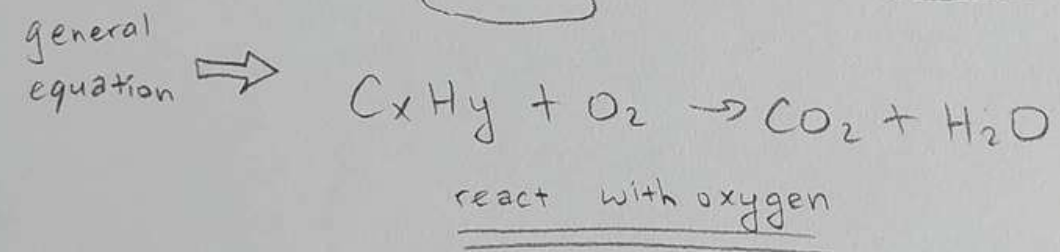 general
equation ⇒
CxHy + O₂ → CO₂ + H₂O
react with oxygen